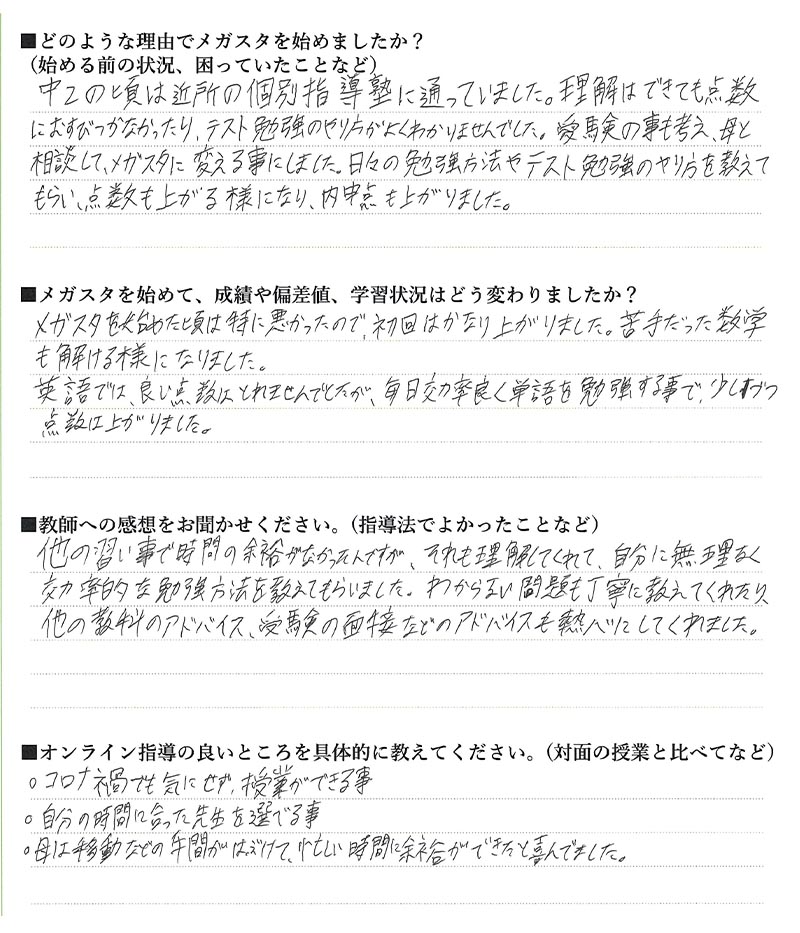 ■どのような理由でメガスタを始めましたか？
（始める前の状況、困っていたことなど）
中2の頃は近所の個別指導塾に通っていました。理解はできても点数
におすびつかなかったり、テスト勉強のやり方がよくわかりませんでした。受験の事も考え、母と
相談して、メガスタに変える事にしました。日々の勉強方法やテスト勉強のやり方を教えて
もらい、点数も上がる様になり、内申点も上がりました。
■メガスタを始めて、成績や偏差値、学習状況はどう変わりましたか？
メガスタを始めた頃は特に悪かったので、初回はかなり上がりました。苦手だった数学
も解ける様になりました。
英語では、良い点数はとれませんでしたが、毎日効率良く単語を勉強する事で、少しずつ
点数は上がりました。
■教師への感想をお聞かせください。（指導法でよかったことなど）
他の習い事で時間の余裕がなかったんですが、それも理解してくれて、自分に無理なく
効率的な勉強方法を教えてもらいました。わからない問題も丁寧に教えてくれたり
他の教科のアドバイス、受験の面接などのアドバイスも熱心にしてくれました。
■オンライン指導の良いところを具体的に教えてください。（対面の授業と比べてなど）
○コロナ禍でも気にせず、授業ができる事
○自分の時間に合った先生を選べる事
○母は移動などの手間がはぶけて、忙しい時間に余裕ができたと喜んでました。